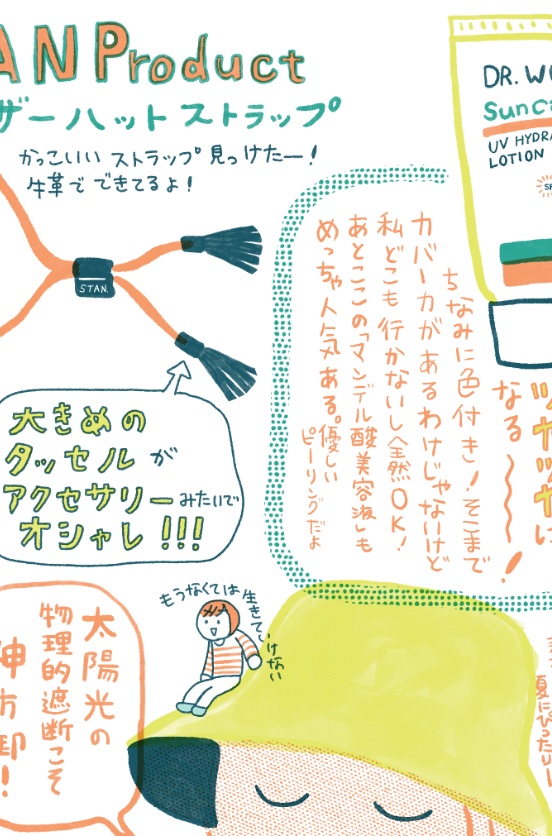 AN Product
ザーハットストラップ
かっこいい ストラップ 見っけたー！
牛革で できてるよ！
STAN.
大きめの
タッセル が
アクセサリー みたいで
オシャレ !!!
DR. W
Sunc
UV HYDRA
LOTION
ちなみに色付き！そこまで
カバー力があるわけじゃないけど
私どこも行かないし全然OK！
あとここの「マンデル酸美容液」も
めっちゃ人気ある。優しい
ピーリングだよ
ツヤッヤに
なる〜〜！
もうなくては生きていけない
太陽光の
物理的遮断こそ
夏にぴったり